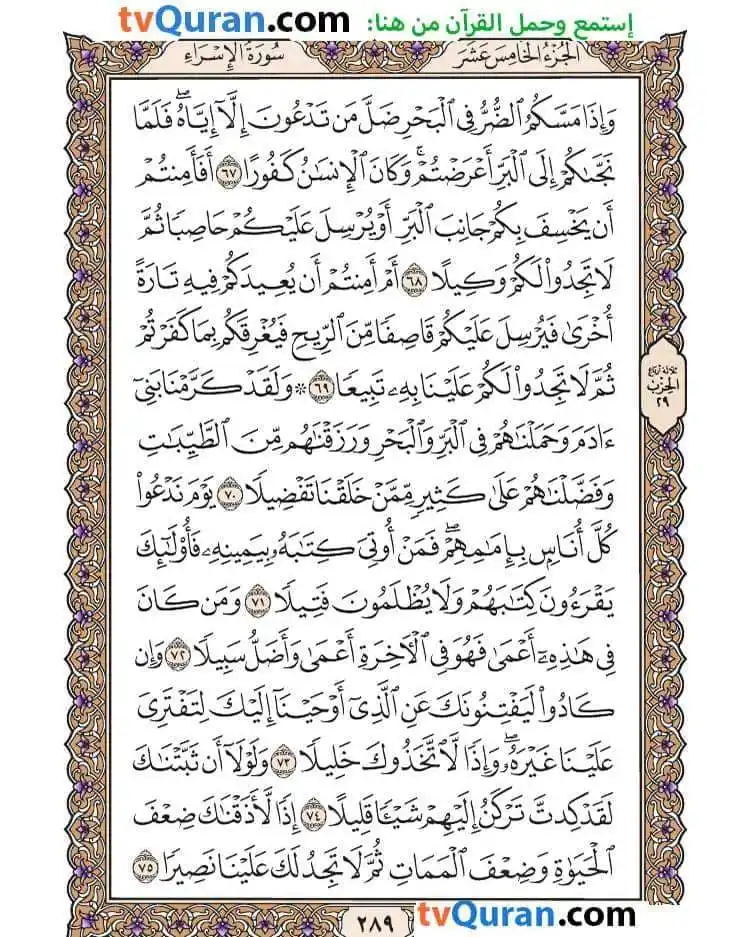 إستمع وحمل القرآن من هنا: tvQuran.com
الجُزءُ الخَامِسَ عَشَرَ سُورَةُ الإِسْرَاءِ
وَإِذَا مَسَّكُمُ ٱلضُّرُّ فِى ٱلْبَحْرِ ضَلَّ مَن تَدْعُونَ إِلَّآ إِيَّاهُ ۖ فَلَمَّا
نَجَّىٰكُمْ إِلَى ٱلْبَرِّ أَعْرَضْتُمْ ۚ وَكَانَ ٱلْإِنسَٰنُ كَفُورًا ٦٧ أَفَأَمِنتُمْ
أَن يَخْسِفَ بِكُمْ جَانِبَ ٱلْبَرِّ أَوْ يُرْسِلَ عَلَيْكُمْ حَاصِبًا ثُمَّ
لَا تَجِدُوا۟ لَكُمْ وَكِيلًا ٦٨ أَمْ أَمِنتُمْ أَن يُعِيدَكُمْ فِيهِ تَارَةً
أُخْرَىٰ فَيُرْسِلَ عَلَيْكُمْ قَاصِفًا مِّنَ ٱلرِّيحِ فَيُغْرِقَكُم بِمَا كَفَرْتُمْ
ثُمَّ لَا تَجِدُوا۟ لَكُمْ عَلَيْنَا بِهِۦ تَبِيعًا ٦٩ ۞ وَلَقَدْ كَرَّمْنَا بَنِىٓ
ءَادَمَ وَحَمَلْنَٰهُمْ فِى ٱلْبَرِّ وَٱلْبَحْرِ وَرَزَقْنَٰهُم مِّنَ ٱلطَّيِّبَٰتِ
وَفَضَّلْنَٰهُمْ عَلَىٰ كَثِيرٍ مِّمَّنْ خَلَقْنَا تَفْضِيلًا ٧٠ يَوْمَ نَدْعُوا۟
كُلَّ أُنَاسٍۭ بِإِمَٰمِهِمْ ۖ فَمَنْ أُوتِىَ كِتَٰبَهُۥ بِيَمِينِهِۦ فَأُو۟لَٰٓئِكَ
يَقْرَءُونَ كِتَٰبَهُمْ وَلَا يُظْلَمُونَ فَتِيلًا ٧١ وَمَن كَانَ
فِى هَٰذِهِۦٓ أَعْمَىٰ فَهُوَ فِى ٱلْءَاخِرَةِ أَعْمَىٰ وَأَضَلُّ سَبِيلًا ٧٢ وَإِن
كَادُوا۟ لَيَفْتِنُونَكَ عَنِ ٱلَّذِىٓ أَوْحَيْنَآ إِلَيْكَ لِتَفْتَرِىَ
عَلَيْنَا غَيْرَهُۥ ۖ وَإِذًا لَّٱتَّخَذُوكَ خَلِيلًا ٧٣ وَلَوْلَآ أَن ثَبَّتْنَٰكَ
لَقَدْ كِدتَّ تَرْكَنُ إِلَيْهِمْ شَيْـًٔا قَلِيلًا ٧٤ إِذًا لَّأَذَقْنَٰكَ ضِعْفَ
ٱلْحَيَوٰةِ وَضِعْفَ ٱلْمَمَاتِ ثُمَّ لَا تَجِدُ لَكَ عَلَيْنَا نَصِيرًا ٧٥
ثلاثة أرباع
الحزب
٢٩
٢٨٩ tvQuran.com